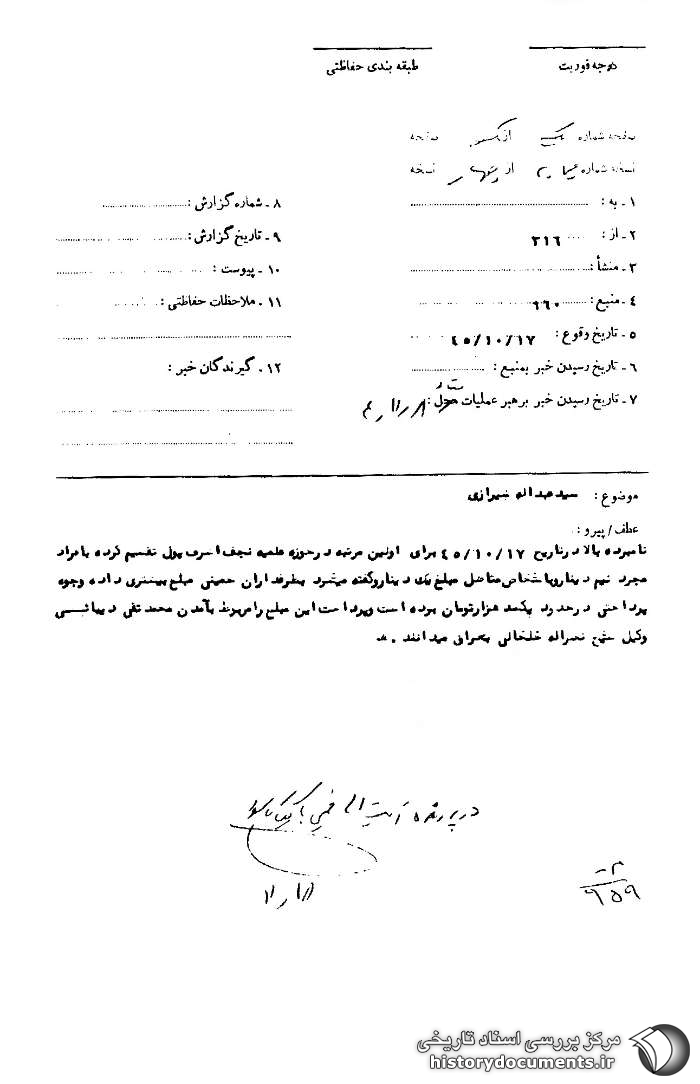 درجه فوریت
طبقه بندی حفاظتی
صفحه شماره یک از یک صفحه
نسخه شماره از نسخه
۱ ـ به :
۲ ـ از : ۳۱۶
۳ ـ منشأ :
۴ ـ منبع : ۹۶۰
۵ ـ تاریخ وقوع : ۴۵/۱۰/۱۷
۶ ـ تاریخ رسیدن خبر بمنبع :
۷ ـ تاریخ رسیدن خبر برهبر عملیات محل :
۸ ـ شماره گزارش :
۹ ـ تاریخ گزارش :
۱۰ ـ پیوست :
۱۱ ـ ملاحظات حفاظتی :
۱۲ ـ گیرندگان خبر :
موضوع : سید عبداله شیرازی
عطف / پیرو :
نامبرده بالا در تاریخ ۴۵/۱۰/۱۷ برای اولین مرتبه در حوزه علمیه نجف اشرف پول تقسیم کرده بافراد
مجرد نیم دینار و باشخاص متاهل مبلغ یک دینار و گفته میشود بطرفداران خمینی مبلغ بیشتری داده وجوه
پرداختی در حدود یکصد هزار تومان بوده است و پرداخت این مبلغ را مربوط بآمدن محمد تقی دیباشی
وکیل شیخ نصراله خلخالی بحرانی میدانند .
در پرونده آیت اله خمینی بایگانی شود
۱۱/۱۸
۳ـ
۹۵۹
مرکز بررسی اسناد تاریخی
historydocuments.ir